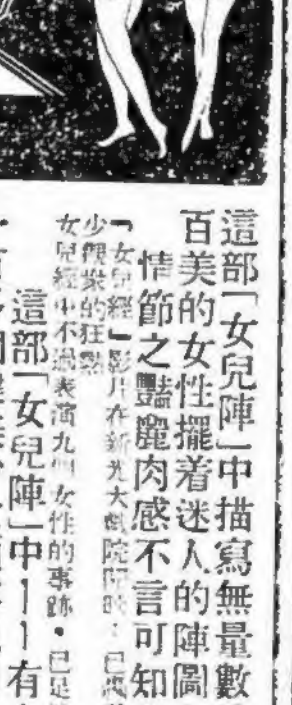 這部「女兒陣」中描寫無量數
百美的女性擺着迷人的陣圖
情節之豔麗肉感不言可知
「女兒經」影片在新光大戲院開映．已
少觀衆的狂
女兒經中不過表演九個女性的事跡．已是
這部「女兒陣」中——有